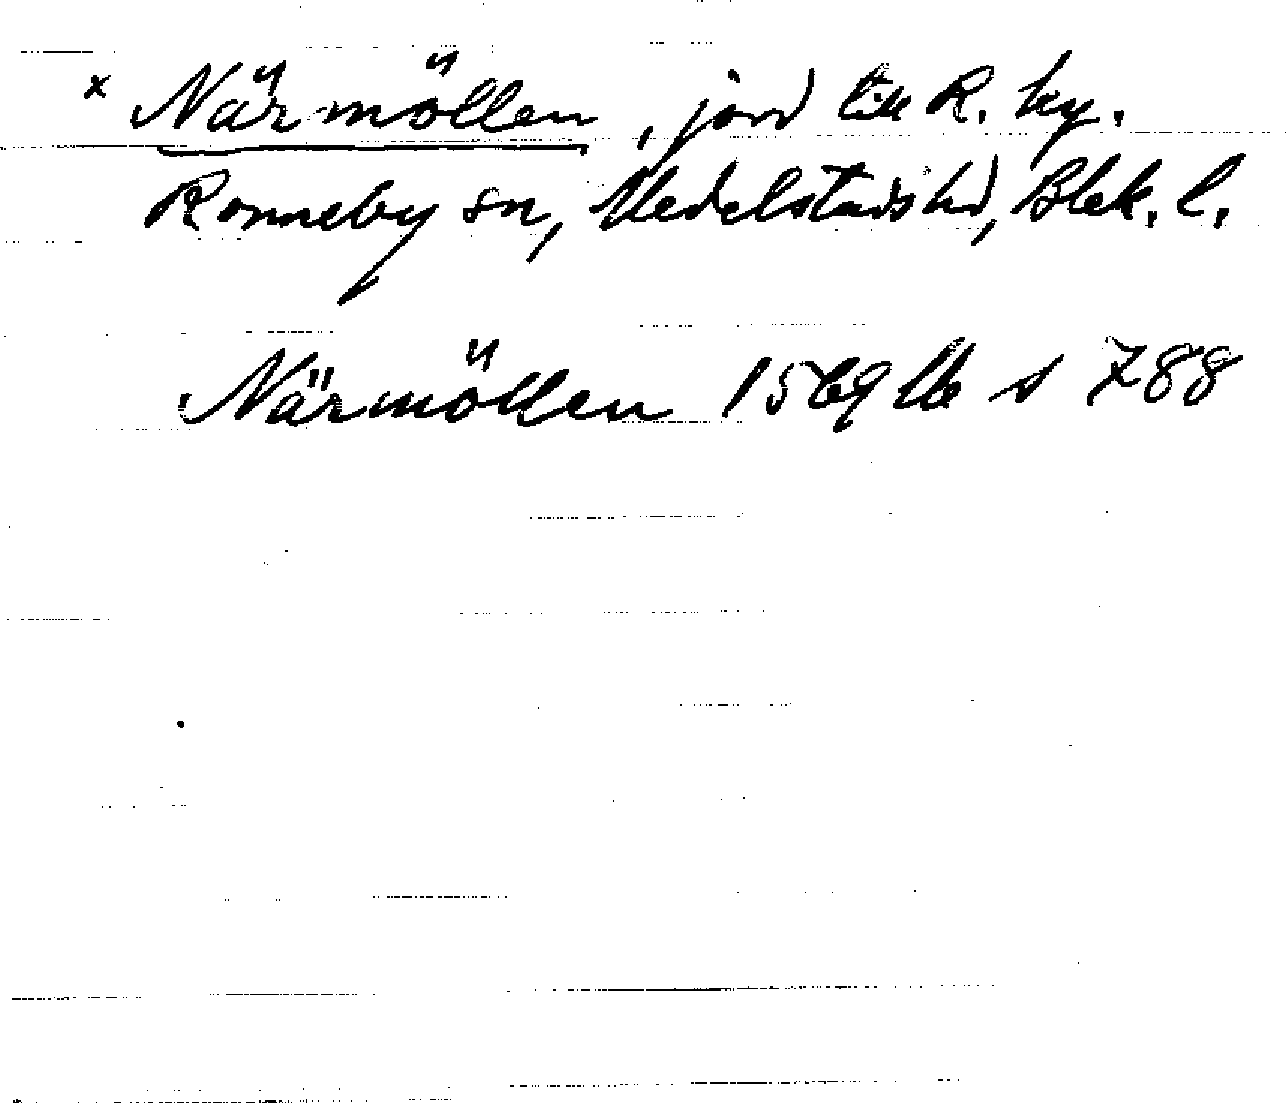 x Närmöllen, jord till R. by.
Ronneby sn, Medelstads hd, Blek. l.
Närmöllen 1569 lb s 788